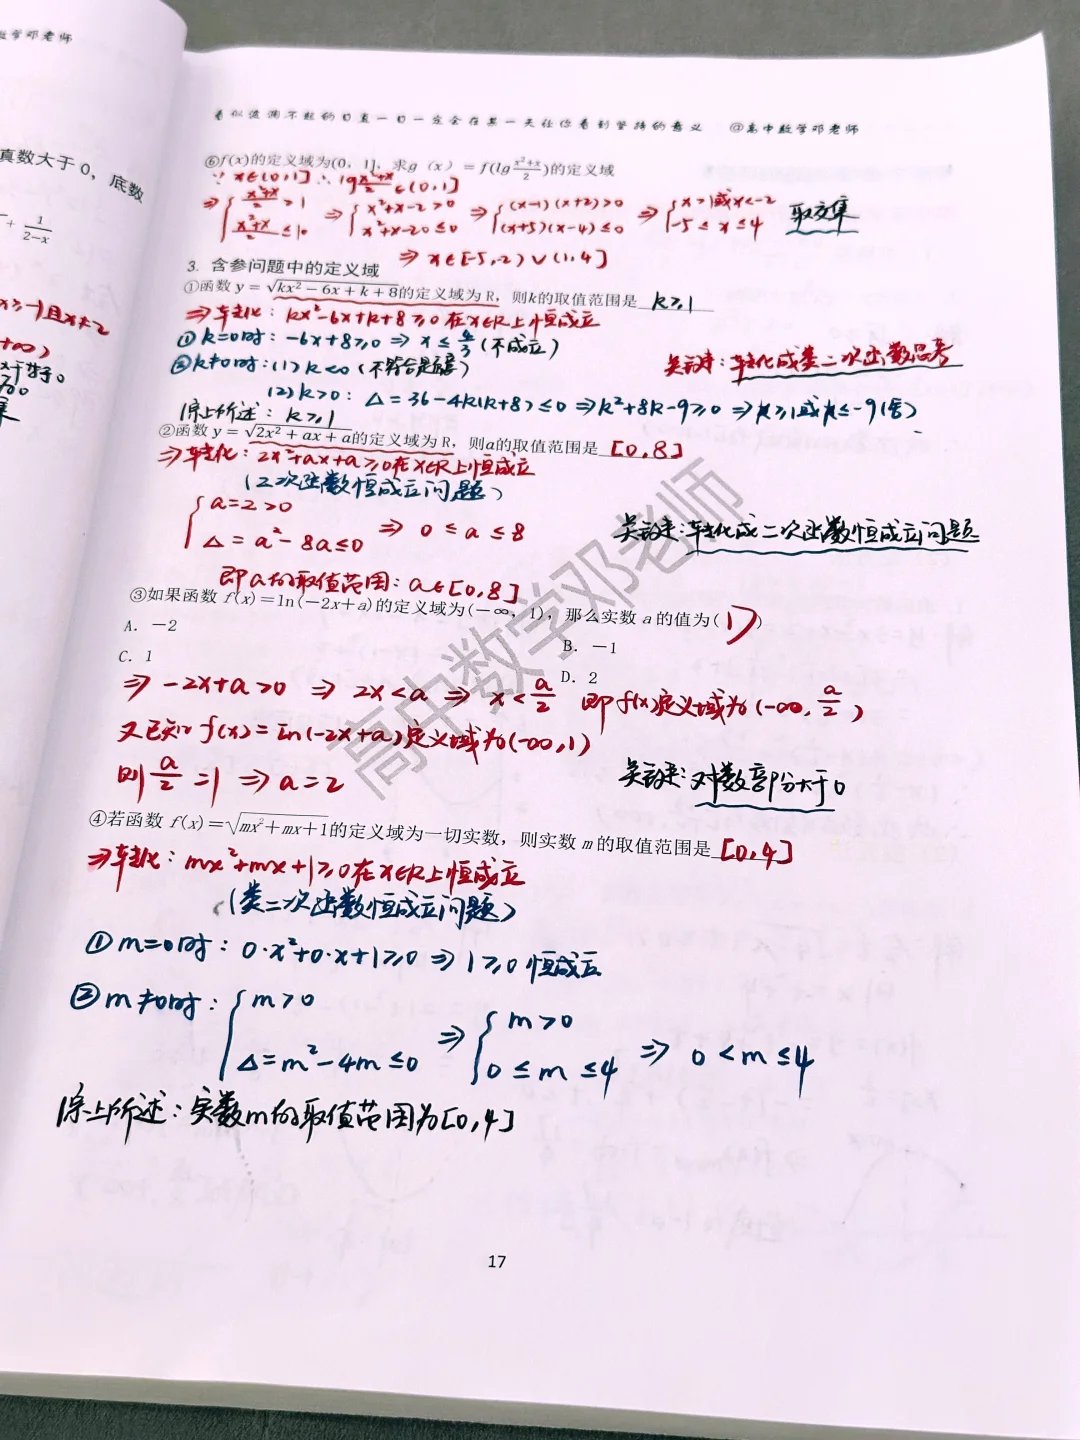 数学邓老师
真数大于0，底数
+ 1/(2−x)
看似波澜不惊的日复一日一定会在某一天让你看到坚持的意义 @高中数学邓老师
⑥f(x)的定义域为(0，1]，求g（x）=f(lg (x²+x)/2)的定义域
∵ x∈(0,1] ∴ lg (x²+x)/2 ∈(0,1]
⇒ { (x²+x)/2 > 1 , (x²+x)/2 ≤ 10 ⇒ { x²+x-2>0 , x²+x-20≤0 ⇒ { (x-1)(x+2)>0 , (x+5)(x-4)≤0 ⇒ { x>1或x<-2 , -5≤x≤4 取交集
⇒ x∈[-5,-2)∪(1,4]
3. 含参问题中的定义域
①函数 y = √(kx² − 6x + k + 8)的定义域为 R，则k的取值范围是 k≥1
⇒转化：kx²-6x+k+8≥0在x∈R上恒成立
①k=0时：-6x+8≥0 ⇒ x≤4/3 (不成立)
②k≠0时：(1) k<0 (不符合题意)
关键：转化成类二次函数思考
(2) k>0：Δ=36-4k(k+8)≤0 ⇒k²+8k-9≥0 ⇒k≥1或k≤-9(舍)
综上所述：k≥1
②函数 y = √(2x² + ax + a)的定义域为 R，则a的取值范围是 [0,8]
⇒转化：2x²+ax+a≥0在x∈R上恒成立
(二次函数恒成立问题)
{ a=2>0 , Δ=a²-8a≤0 ⇒ 0≤a≤8
关键：转化成二次函数恒成立问题
即a的取值范围：a∈[0,8]
③如果函数 f(x)=ln(−2x+a)的定义域为(−∞，1)，那么实数 a 的值为( D )
A．−2
B．−1
C．1
D．2
⇒ -2x+a>0 ⇒ 2x<a ⇒ x<a/2 即f(x)定义域为(-∞, a/2)
又已知 f(x)=ln(-2x+a)定义域为(-∞,1)
则 a/2 =1 ⇒ a=2
关键：对数部分大于0
④若函数 f(x)=√(mx²+mx+1)的定义域为一切实数，则实数 m 的取值范围是 [0,4]
⇒转化：mx²+mx+1≥0在x∈R上恒成立
(类二次函数恒成立问题)
①m=0时：0·x²+0·x+1≥0 ⇒ 1≥0 恒成立
②m≠0时：{ m>0 , Δ=m²-4m≤0 ⇒ { m>0 , 0≤m≤4 ⇒ 0<m≤4
综上所述：实数m的取值范围为[0,4]
高中数学邓老师
17